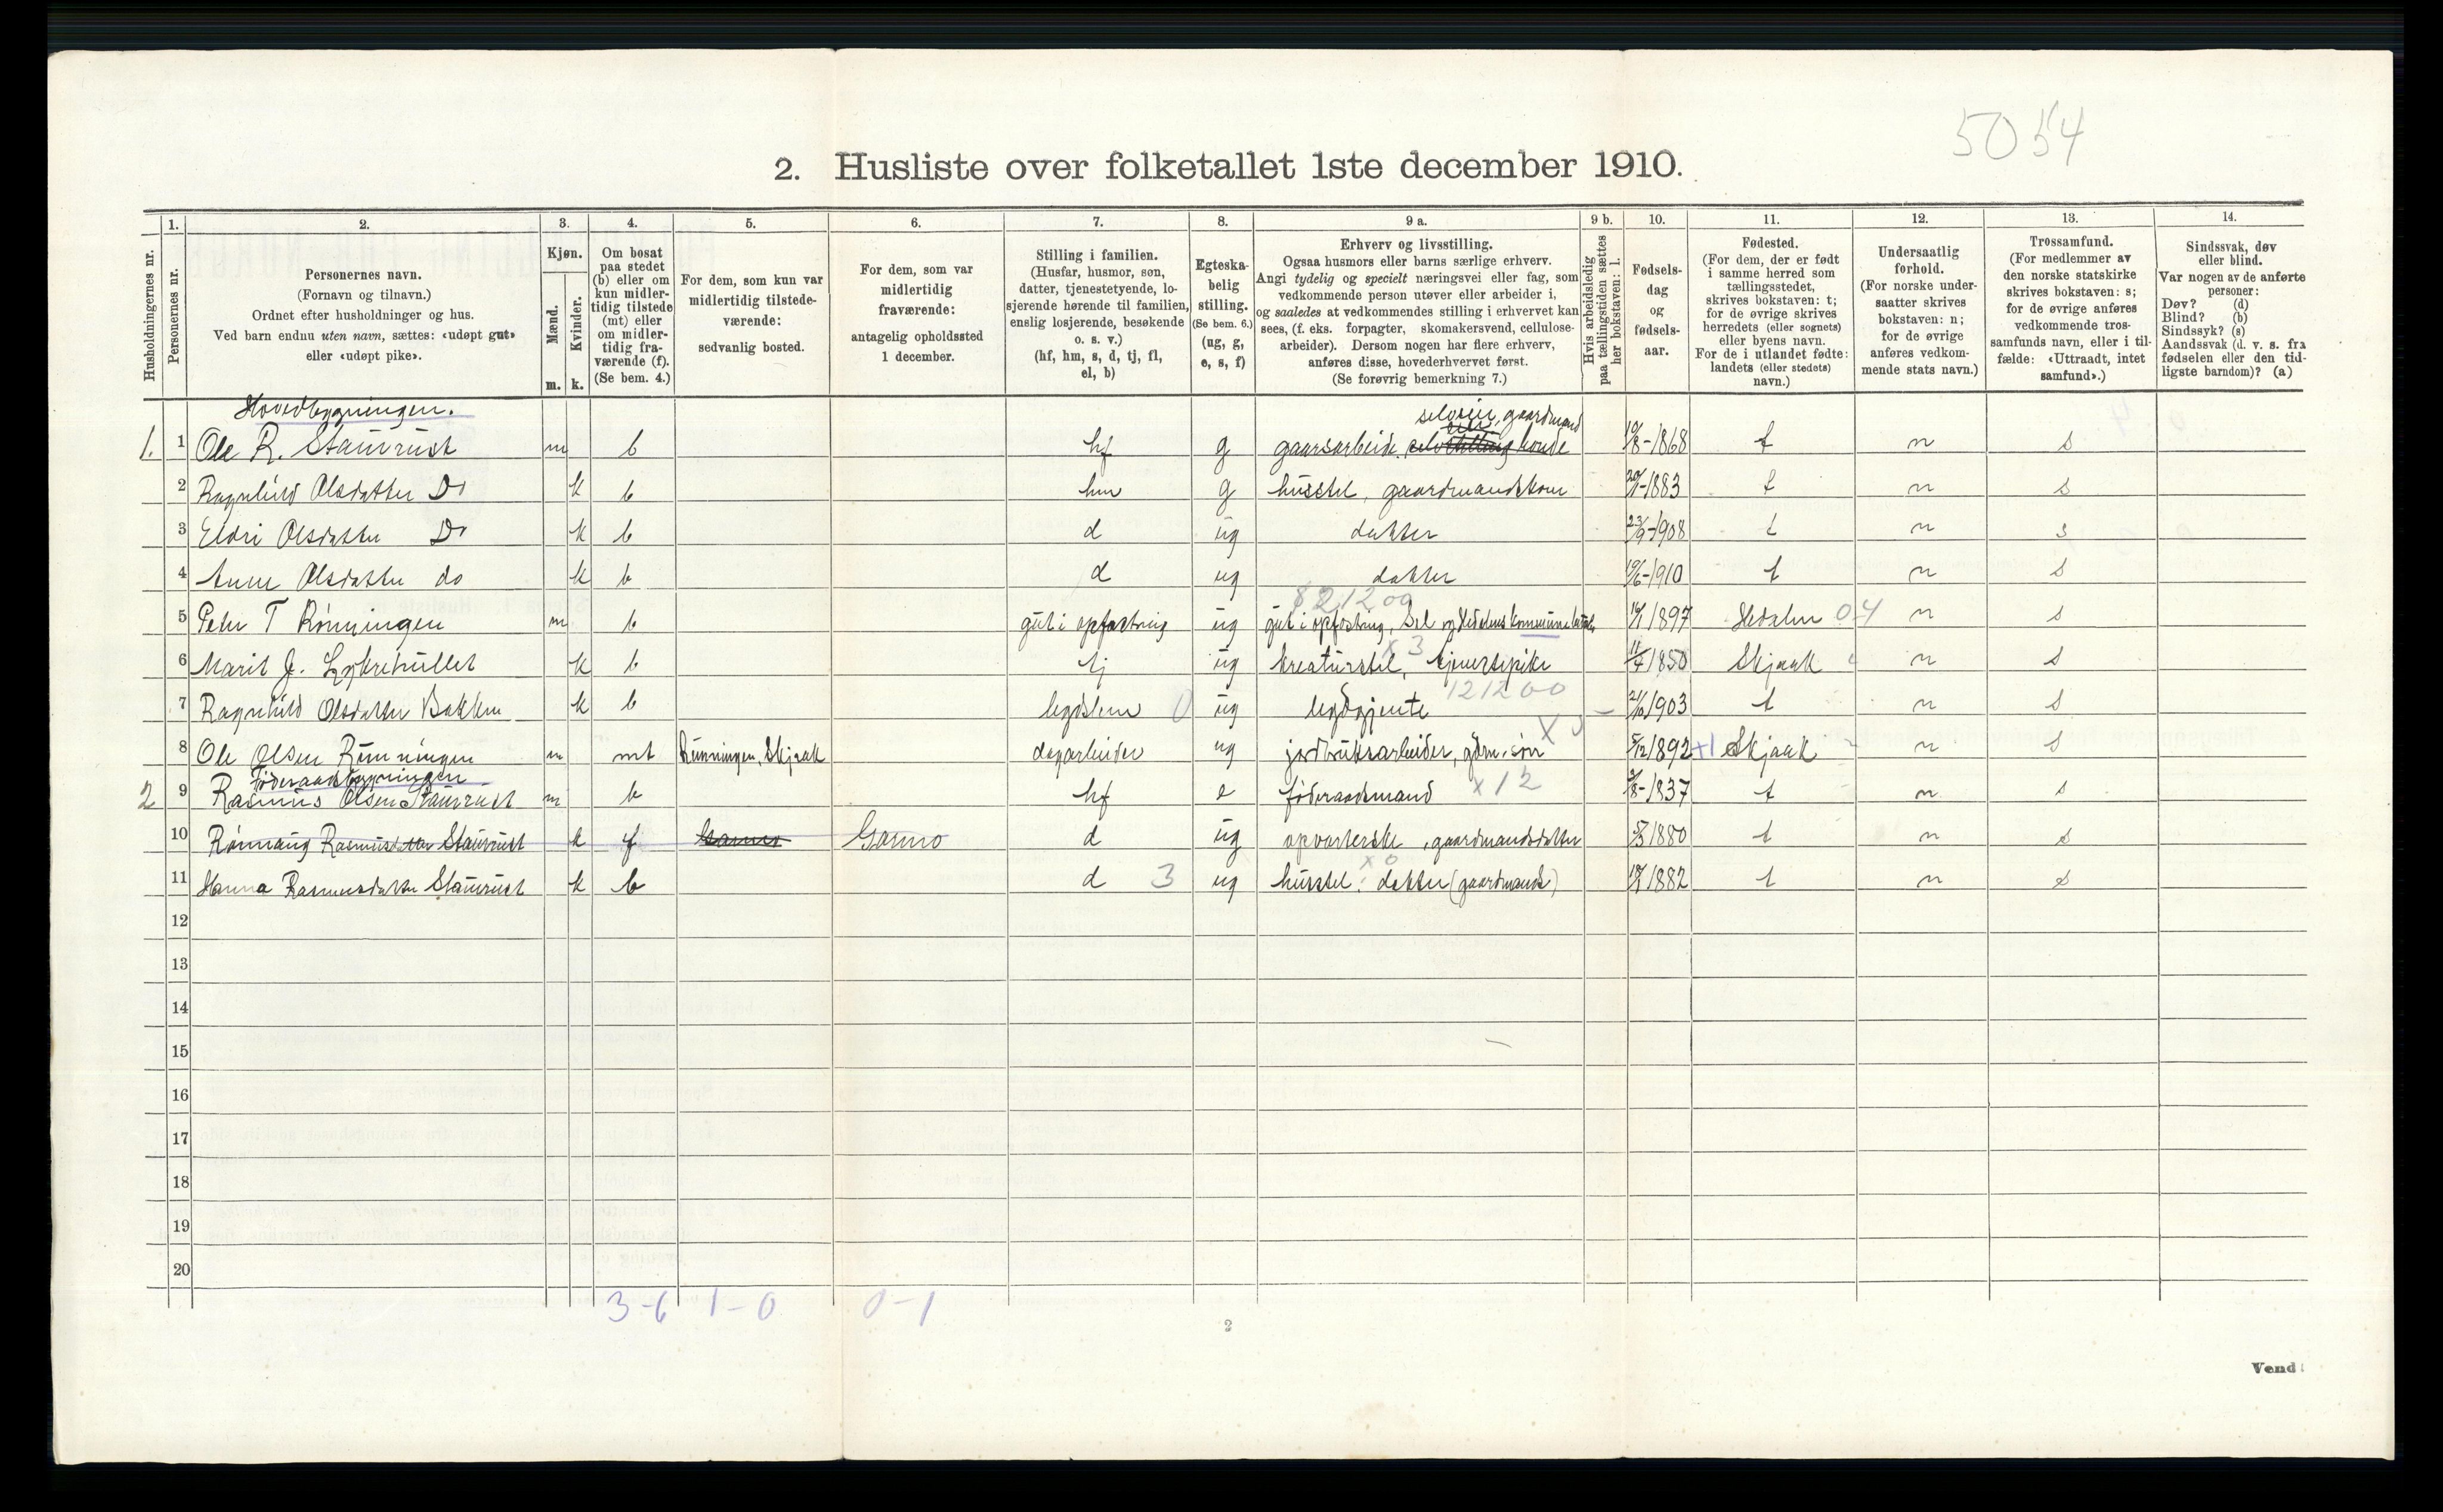 5054
2. Husliste over folketallet 1ste december 1910.
Husholdningernes nr.
1.
Personernes nr.
2.
Personernes navn.
(Fornavn og tilnavn.)
Ordnet efter husholdninger og hus.
Ved barn endnu uten navn, sættes: «udøpt gut»
eller «udøpt pike».
3.
Kjøn.
Mænd.
Kvinder.
m. k.
4.
Om bosat
paa stedet
(b) eller om
kun midler-
tidig tilstede
(mt) eller
om midler-
tidig fra-
værende (f).
(Se bem. 4.)
5.
For dem, som kun var
midlertidig tilstede-
værende:
sedvanlig bosted.
6.
For dem, som var
midlertidig
fraværende:
antagelig opholdssted
1 december.
7.
Stilling i familien.
(Husfar, husmor, søn,
datter, tjenestetyende, lo-
sjerende hørende til familien,
enslig losjerende, besøkende
o. s. v.)
(hf, hm, s, d, tj, fl,
el, b)
8.
Egteska-
belig
stilling.
(Se bem. 6.)
(ug, g,
e, s, f)
9 a.
Erhverv og livsstilling.
Ogsaa husmors eller barns særlige erhverv.
Angi tydelig og specielt næringsvei eller fag, som
vedkommende person utøver eller arbeider i,
og saaledes at vedkommendes stilling i erhvervet kan
sees, (f. eks. forpagter, skomakersvend, cellulose-
arbeider). Dersom nogen har flere erhverv,
anføres disse, hovederhvervet først.
(Se forøvrig bemerkning 7.)
9 b.
Hvis arbeidsledig
paa tællingstiden sættes
her bokstaven: l.
10.
Fødsels-
dag
og
fødsels-
aar.
11.
Fødested.
(For dem, der er født
i samme herred som
tællingsstedet,
skrives bokstaven: t;
for de øvrige skrives
herredets (eller sognets)
eller byens navn.
For de i utlandet fødte:
landets (eller stedets)
navn.)
12.
Undersaatlig
forhold.
(For norske under-
saatter skrives
bokstaven: n;
for de øvrige
anføres vedkom-
mende stats navn.)
13.
Trossamfund.
(For medlemmer av
den norske statskirke
skrives bokstaven: s;
for de øvrige anføres
vedkommende tros-
samfunds navn, eller i til-
fælde: «Uttraadt, intet
samfund».)
14.
Sindssvak, døv
eller blind.
Var nogen av de anførte
personer:
Døv? (d)
Blind? (b)
Sindssyk? (s)
Aandssvak (d. v. s. fra
fødselen eller den tid-
ligste barndom)? (a)
Hovedbygningen.
selveier, gaardmand
1. 1 Ole R. Staurust m b hf g gaarsarbeide 19/8-1868 t n s
2 Ragnhild Olsdatter Do k b hm g husstel, gaardmandskone 1883 t n s
3 Eldri Olsdatter Do k b d ug datter 23/9-1908 t n s
4 Anne Olsdatter do k b d ug datter 19/6-1910 t n s
821200
5 Peder T Rønningen m b gut i opfostring ug gut i opfostring, Sel og Hedalens kommune 1897 Hedalen 04 n s
x 3
6 Marit J. k b tj ug kreaturstel, tjenestepike 11/4 1850 Skjaak n s
121200
7 Ragnhild Olsdatter Bakken k b legdslem 0 ug legdgjente 21/10 1903 t n s
8 Ole Olsen Rønningen m mt Rønningen, Skjaak dagarbeider ug jordbruksarbeider, gdm. søn 5/12 1892 +1 Skjaak n s
Føderaadsbygningen
2 9 Rasmus Olsen Staurust m b hf e føderaadsmand x12 1837 t n s
10 Rønnaug Rasmusdatter Staurust k f Garmo Garmo d ug opvarterske, gaardmandsdatter 1880 t n s
x 0
11 Hanna Rasmusdatter Staurust k b d 3 ug husstel. datter (gaardmands) 1882 t n s
12
13
14
15
16
17
18
19
20
3-6 1-0 0-1
2
Vend!